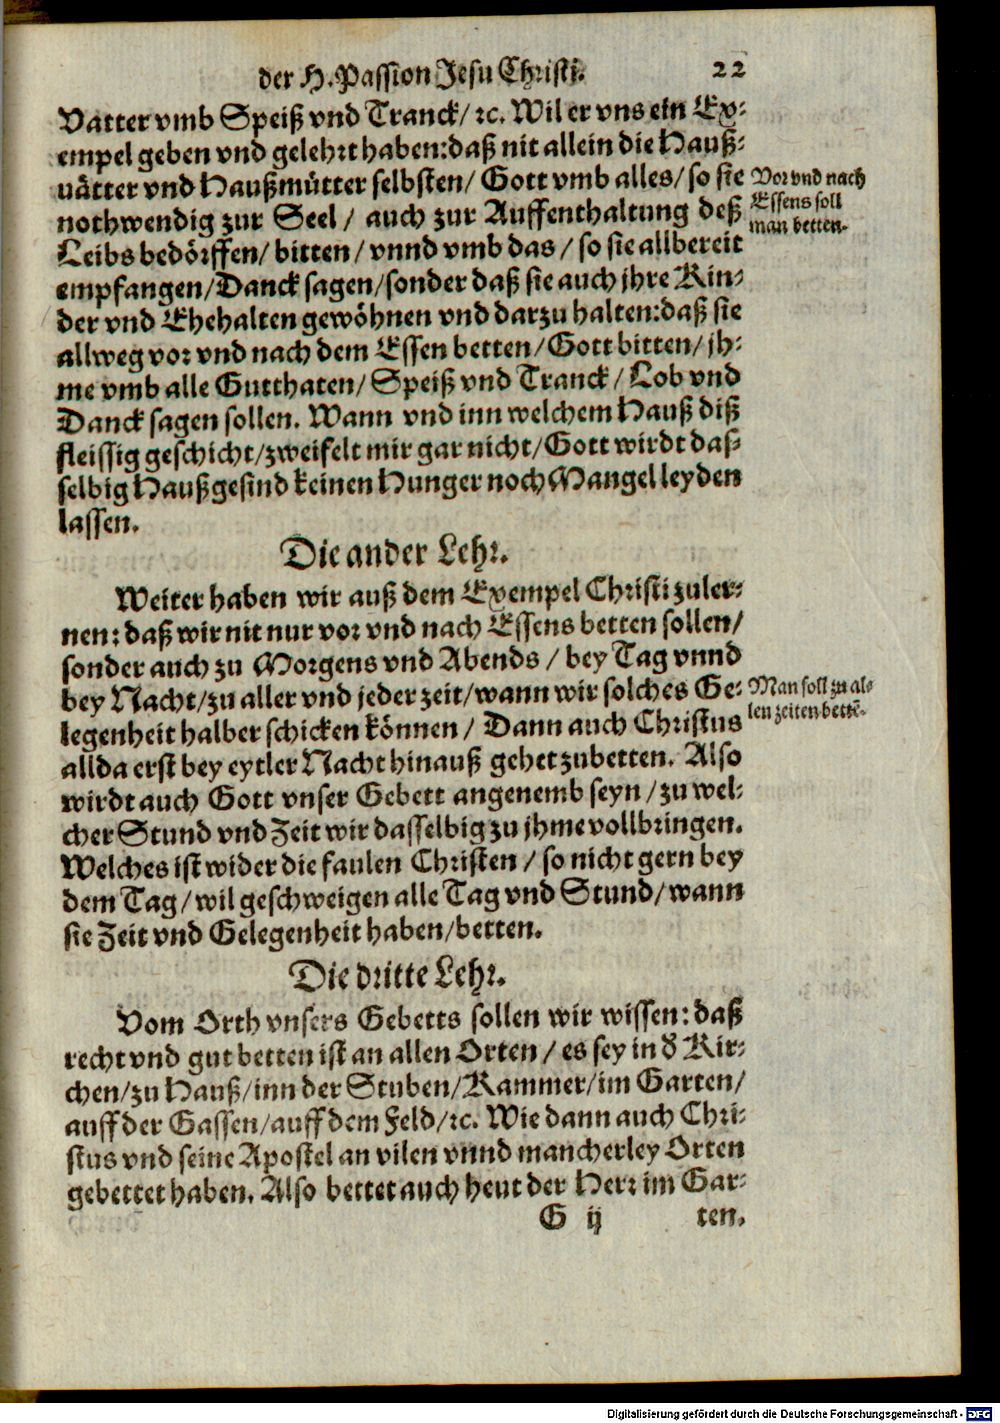 der H. Passion Jesu Christi. 22
Vatter vmb Speiß vnd Tranck/ ꝛc. Wil er vns ein Ex⸗
empel geben vnd gelehrt haben: daß nit allein die Hauß⸗
uätter vnd Haußmütter selbsten/ Gott vmb alles/ so sie
nothwendig zur Seel/ auch zur Auffenthaltung deß
Leibs bedörffen/ bitten/ vnnd vmb das/ so sie allbereit
empfangen/ Danck sagen/ sonder daß sie auch jhre Kin⸗
der vnd Ehehalten gewöhnen vnd darzu halten: daß sie
allweg vor vnd nach dem Essen betten/ Gott bitten/ jh⸗
me vmb alle Gutthaten/ Speiß vnd Tranck/ Lob vnd
Danck sagen sollen. Wann vnd inn welchem Hauß diß
fleissig geschicht/ zweifelt mir gar nicht/ Gott wirdt das⸗
selbig Haußgesind keinen Hunger noch Mangel leyden
lassen.
Vor vnd nach
Essens soll
man betten.
Die ander Lehr.
Weiter haben wir auß dem Exempel Christi zuler⸗
nen: daß wir nit nur vor vnd nach Essens betten sollen/
sonder auch zu Morgens vnd Abends/ bey Tag vnnd
bey Nacht/ zu aller vnd jeder zeit/ wann wir solches Ge⸗
legenheit halber schicken können/ Dann auch Christus
allda erst bey eytler Nacht hinauß gehet zubetten. Also
wirdt auch Gott vnser Gebett angenemb seyn/ zu wel⸗
cher Stund vnd Zeit wir dasselbig zu jhme vollbringen.
Welches ist wider die faulen Christen/ so nicht gern bey
dem Tag/ wil geschweigen alle Tag vnd Stund/ wann
sie Zeit vnd Gelegenheit haben/ betten.
Man soll zu al⸗
len zeiten bettē.
Die dritte Lehr.
Vom Orth vnsers Gebetts sollen wir wissen: daß
recht vnd gut betten ist an allen Orten/ es sey in d' Kir⸗
chen/ zu Hauß/ inn der Stuben/ Kammer/ im Garten/
auff der Gassen/ auff dem Feld/ ꝛc. Wie dann auch Chri⸗
stus vnd seine Apostel an vilen vnnd mancherley Orten
gebettet haben. Also bettet auch heut der Herr im Gar⸗
G ij ten.
Digitalisierung gefördert durch die Deutsche Forschungsgemeinschaft - DFG